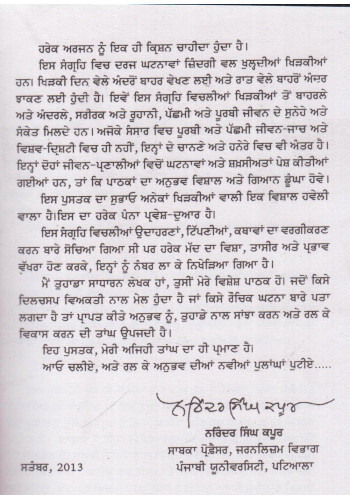 ਹਰੇਕ ਅਰਜਨ ਨੂੰ ਇਕ ਹੀ ਕ੍ਰਿਸ਼ਨ ਚਾਹੀਦਾ ਹੁੰਦਾ ਹੈ।
ਇਸ ਸੰਗ੍ਰਹਿ ਵਿਚ ਦਰਜ ਘਟਨਾਵਾਂ ਜ਼ਿੰਦਗੀ ਵਲ ਖੁਲ੍ਹਦੀਆਂ ਖਿੜਕੀਆਂ
ਹਨ। ਖਿੜਕੀ ਦਿਨ ਵੇਲੇ ਅੰਦਰੋਂ ਬਾਹਰ ਵੇਖਣ ਲਈ ਅਤੇ ਰਾਤ ਵੇਲੇ ਬਾਹਰੋਂ ਅੰਦਰ
ਝਾਕਣ ਲਈ ਹੁੰਦੀ ਹੈ। ਇਵੇਂ ਇਸ ਸੰਗ੍ਰਹਿ ਵਿਚਲੀਆਂ ਖਿੜਕੀਆਂ ਤੋਂ ਬਾਹਰਲੇ
ਅਤੇ ਅੰਦਰਲੇ, ਸਰੀਰਕ ਅਤੇ ਰੂਹਾਨੀ, ਪੱਛਮੀ ਅਤੇ ਪੂਰਬੀ ਜੀਵਨ ਦੇ ਸੁਨੇਹੇ ਅਤੇ
ਸੰਕੇਤ ਮਿਲਦੇ ਹਨ। ਅਜੋਕੇ ਸੰਸਾਰ ਵਿਚ ਪੂਰਬੀ ਅਤੇ ਪੱਛਮੀ ਜੀਵਨ-ਜਾਚ ਅਤੇ
ਵਿਸ਼ਵ-ਦ੍ਰਿਸ਼ਟੀ ਵਿਚ ਹੀ ਨਹੀਂ, ਇਨ੍ਹਾਂ ਦੇ ਚਾਨਣੇ ਅਤੇ ਹਨੇਰੇ ਵਿਚ ਵੀ ਅੰਤਰ ਹੈ।
ਇਨ੍ਹਾਂ ਦੋਹਾਂ ਜੀਵਨ-ਪ੍ਰਣਾਲੀਆਂ ਵਿਚੋਂ ਘਟਨਾਵਾਂ ਅਤੇ ਸ਼ਖ਼ਸੀਅਤਾਂ ਪੇਸ਼ ਕੀਤੀਆਂ
ਗਈਆਂ ਹਨ, ਤਾਂ ਕਿ ਪਾਠਕਾਂ ਦਾ ਅਨੁਭਵ ਵਿਸ਼ਾਲ ਅਤੇ ਗਿਆਨ ਡੂੰਘਾ ਹੋਵੇ।
ਇਸ ਪੁਸਤਕ ਦਾ ਸੁਭਾਓ ਅਨੇਕਾਂ ਖਿੜਕੀਆਂ ਵਾਲੀ ਇਕ ਵਿਸ਼ਾਲ ਹਵੇਲੀ
ਵਾਲਾ ਹੈ। ਇਸ ਦਾ ਹਰੇਕ ਪੰਨਾ ਪ੍ਰਵੇਸ਼-ਦੁਆਰ ਹੈ।
ਇਸ ਸੰਗ੍ਰਹਿ ਵਿਚਲੀਆਂ ਉਦਾਹਰਣਾਂ, ਟਿੱਪਣੀਆਂ, ਕਥਾਵਾਂ ਦਾ ਵਰਗੀਕਰਣ
ਕਰਨ ਬਾਰੇ ਸੋਚਿਆ ਗਿਆ ਸੀ ਪਰ ਹਰੇਕ ਮੱਦ ਦਾ ਵਿਸ਼ਾ, ਤਾਸੀਰ ਅਤੇ ਪ੍ਰਭਾਵ
ਵੱਖਰਾ ਹੋਣ ਕਰਕੇ, ਇਨ੍ਹਾਂ ਨੂੰ ਨੰਬਰ ਲਾ ਕੇ ਨਿਖੇੜਿਆ ਗਿਆ ਹੈ।
ਮੈਂ ਤੁਹਾਡਾ ਸਾਧਾਰਨ ਲੇਖਕ ਹਾਂ, ਤੁਸੀਂ ਮੇਰੇ ਵਿਸ਼ੇਸ਼ ਪਾਠਕ ਹੋ। ਜਦੋਂ ਕਿਸੇ
ਦਿਲਚਸਪ ਵਿਅਕਤੀ ਨਾਲ ਮੇਲ ਹੁੰਦਾ ਹੈ ਜਾਂ ਕਿਸੇ ਰੌਚਿਕ ਘਟਨਾ ਬਾਰੇ ਪਤਾ
ਲਗਦਾ ਹੈ ਤਾਂ ਪ੍ਰਾਪਤ ਕੀਤੇ ਅਨੁਭਵ ਨੂੰ, ਤੁਹਾਡੇ ਨਾਲ ਸਾਂਝਾ ਕਰਨ ਅਤੇ ਰਲ ਕੇ
ਵਿਕਾਸ ਕਰਨ ਦੀ ਤਾਂਘ ਉਪਜਦੀ ਹੈ।
ਇਹ ਪੁਸਤਕ, ਮੇਰੀ ਅਜਿਹੀ ਤਾਂਘ ਦਾ ਹੀ ਪ੍ਰਮਾਣ ਹੈ।
ਆਓ ਚਲੀਏ, ਅਤੇ ਰਲ ਕੇ ਅਨੁਭਵ ਦੀਆਂ ਨਵੀਆਂ ਪੁਲਾਂਘਾਂ ਪੁਟੀਏ.....
ਨਰਿੰਦਰ ਸਿੰਘ ਕਪੂਰ
ਨਰਿੰਦਰ ਸਿੰਘ ਕਪੂਰ
ਸਾਬਕਾ ਪ੍ਰੋਫ਼ੈਸਰ, ਜਰਨਲਿਜ਼ਮ ਵਿਭਾਗ
ਸਤੰਬਰ, 2013 ਪੰਜਾਬੀ ਯੂਨੀਵਰਸਿਟੀ, ਪਟਿਆਲਾ